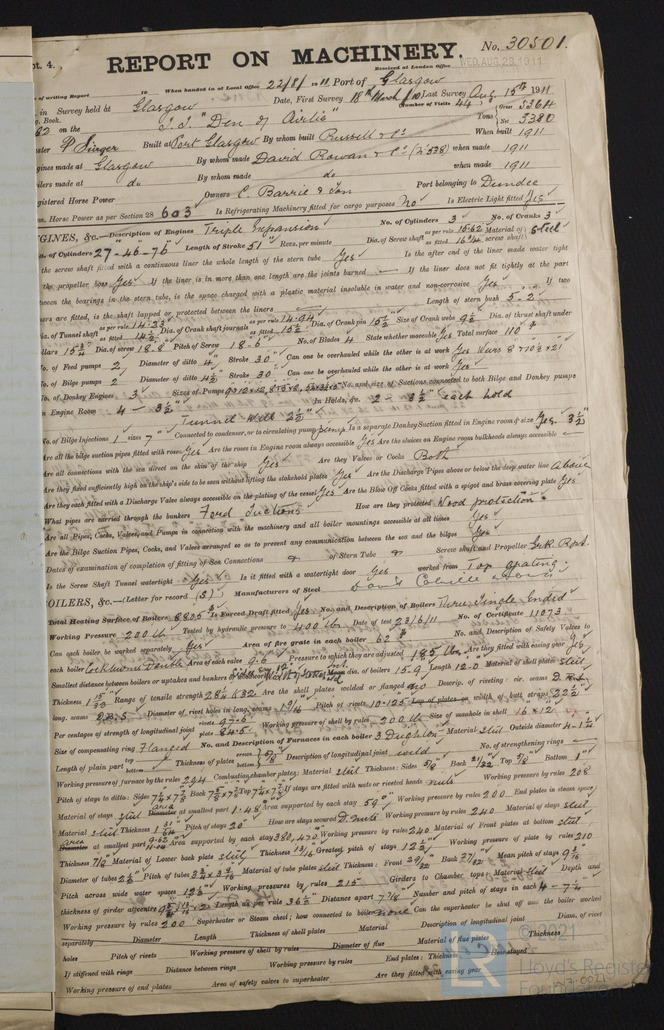 pt. 4.
REPORT ON MACHINERY. No. 30501.
Received at London Office WED. AUG. 23. 1911
of writing Report 19 When handed in at Local Office 22/8/ 1911 Port of Glasgow
in Survey held at Glasgow Date, First Survey 18th March /10 Last Survey Aug. 15th 1911
Book. Number of Visits 44
62 on the S.S. "Den of Airlie" Tons Gross 5364 Net 3380
ster P Singer Built at Port Glasgow By whom built Russell & Co When built 1911
gines made at Glasgow By whom made David Rowan & Co (No 538) when made 1911
oilers made at do By whom made do when made 1911
gistered Horse Power Owners C. Barrie & Son Port belonging to Dundee
m. Horse Power as per Section 28 603 Is Refrigerating Machinery fitted for cargo purposes No Is Electric Light fitted Yes
NGINES, &c.—Description of Engines Triple Expansion No. of Cylinders 3 No. of Cranks 3
a. of Cylinders 27"-46-76 Length of Stroke 51" Revs. per minute Dia. of Screw shaft as per rule 16.62 as fitted 16 3/4 Material of screw shaft Steel
the screw shaft fitted with a continuous liner the whole length of the stern tube Yes Is the after end of the liner made water tight
the propeller boss Yes If the liner is in more than one length are the joints burned — If the liner does not fit tightly at the part
tween the bearings in the stern tube, is the space charged with a plastic material insoluble in water and non-corrosive Yes If two
ners are fitted, is the shaft lapped or protected between the liners — Length of stern bush 5-2"
ia. of Tunnel shaft as per rule 14.23 as fitted 14 1/2 Dia. of Crank shaft journals as per rule 14.94 as fitted 15 1/2 Dia. of Crank pin 15 1/2 Size of Crank webs 9 1/2 Dia. of thrust shaft under
llars 15 3/4 Dia. of screw 18-8" Pitch of Screw 18-6" No. of Blades 4 State whether moveable Yes Total surface 110
o. of Feed pumps 2 Diameter of ditto 4 Stroke 30" Can one be overhauled while the other is at work Yes
o. of Bilge pumps 2 Diameter of ditto 4 1/2 Stroke 30" Can one be overhauled while the other is at work Yes
o. of Donkey Engines 3 Sizes of Pumps No. and size of Suctions connected to both Bilge and Donkey pumps
n Engine Room 4 - 3 1/2" In Holds, &c. 2 - 3 1/2" each hold
Tunnel Well 2 1/2"
No. of Bilge Injections 1 sizes 7" Connected to condenser, or to circulating pump pump Is a separate Donkey Suction fitted in Engine room & size Yes. 3 1/2"
Are all the bilge suction pipes fitted with roses Yes Are the roses in Engine room always accessible Yes Are the sluices on Engine room bulkheads always accessible —
Are all connections with the sea direct on the skin of the ship Yes Are they Valves or Cocks Both
Are they fixed sufficiently high on the ship's side to be seen without lifting the stokehold plates Yes Are the Discharge Pipes above or below the deep water line Above
Are they each fitted with a Discharge Valve always accessible on the plating of the vessel Yes Are the Blow Off Cocks fitted with a spigot and brass covering plate Yes
What pipes are carried through the bunkers Ford Suctions How are they protected Wood protection
Are all Pipes, Cocks, Valves, and Pumps in connection with the machinery and all boiler mountings accessible at all times Yes
Are the Bilge Suction Pipes, Cocks, and Valves arranged so as to prevent any communication between the sea and the bilges Yes
Dates of examination of completion of fitting of Sea Connections of Stern Tube Screw shaft and Propeller Grk Rpt.
Is the Screw Shaft Tunnel watertight Yes Is it fitted with a watertight door Yes worked from Top grating.
OILERS, &c.—(Letter for record (S) ) Manufacturers of Steel David Colville & Sons
Total Heating Surface of Boilers 8805 Is Forced Draft fitted Yes No. and Description of Boilers Three Single Ended
Working Pressure 200 lb Tested by hydraulic pressure to 400 lb Date of test 23/6/11 No. of Certificate 11073
Can each boiler be worked separately Yes Area of fire grate in each boiler 62 No. and Description of Safety Valves to
each boiler Cockburns Double Area of each valve 9.6 Pressure to which they are adjusted 185 lb Are they fitted with easing gear Yes
Smallest distance between boilers or uptakes and bunkers or woodwork Mean dia. of boilers 15.9 Length 12-0 Material of shell plates Steel
Thickness Range of tensile strength 28 1/2 & 32 Are the shell plates welded or flanged no Descrip. of riveting: cir. seams
long. seams Diameter of rivet holes in long. seams 1 9/16 Pitch of rivets 10.125 Lap of plates or width of butt straps 22 1/2
Per centages of strength of longitudinal joint rivets 97.6 plate 84.5 Working pressure of shell by rules 200 lb Size of manhole in shell 16 x 12"
Size of compensating ring Flanged No. and Description of Furnaces in each boiler 3 Deighton Material Steel Outside diameter 4-1 1/4
Length of plain part top bottom Thickness of plates crown bottom 5/8 Description of longitudinal joint weld No. of strengthening rings —
Working pressure of furnace by the rules 294 Combustion chamber plates: Material Steel Thickness: Sides 5/8 Back 21/32 Top 5/8" Bottom 1"
Pitch of stays to ditto: Sides Back Top If stays are fitted with nuts or riveted heads nuts Working pressure by rules 208
Material of stays Steel area at smallest part 1.48 Area supported by each stay 59" Working pressure by rules 200 End plates in steam space
Material Steel Thickness Pitch of stays 20" How are stays secured Working pressure by rules 240 Material of stays Steel
area at smallest part Area supported by each stay 380, 420 Working pressure by rules 240 Material of Front plates at bottom Steel
Thickness 7/8 Material of Lower back plate Steel Thickness 13/16 Greatest pitch of stays 12 3/4 Working pressure of plate by rules 210
Diameter of tubes 2 3/4 Pitch of tubes Material of tube plates Steel Thickness: Front 29/32 Back 27/32 Mean pitch of stays
Pitch across wide water spaces 13 1/2 Working pressures by rules 215 Girders to Chamber tops: Material Steel Depth and
thickness of girder at centre Length as per rule 36 1/2 Distance apart 7 7/8 Number and pitch of stays in each 4 - 7 1/4
Working pressure by rules 200 Superheater or Steam chest; how connected to boiler none Can the superheater be shut off and the boiler worked
separately Diameter Length Thickness of shell plates Material Description of longitudinal joint Diam. of rivet
holes Pitch of rivets Working pressure of shell by rules Diameter of flue Material of flue plates Thickness
If stiffened with rings Distance between rings Working pressure by rules End plates: Thickness How stayed
Working pressure of end plates Area of safety valves to superheater Are they fitted with easing gear
© 2021
Lloyd's Register
Foundation